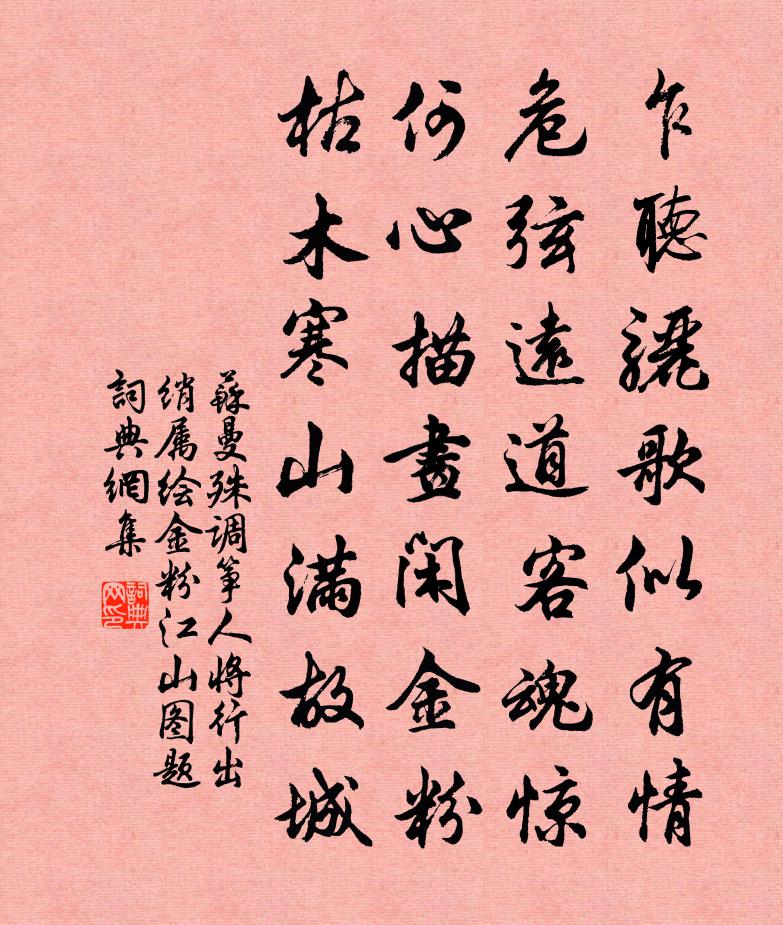 乍聽驪歌似有情
危弦遠道客魂惊
何心描畫闲金粉
枯木寒山满故城
蘇曼殊调筝人将行出
绡属绘金粉江山图题
詞典網集
詞典
网印